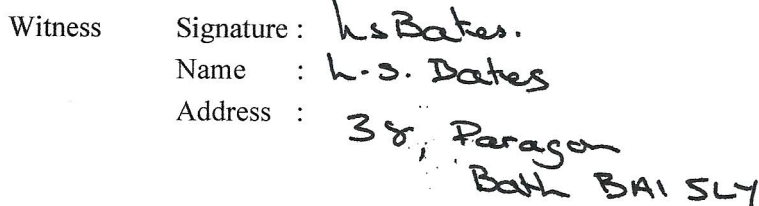 Witness Signature : LsBates.
Name : L.S. Bates
Address : 38, Paragon
Bath BA1 5LY